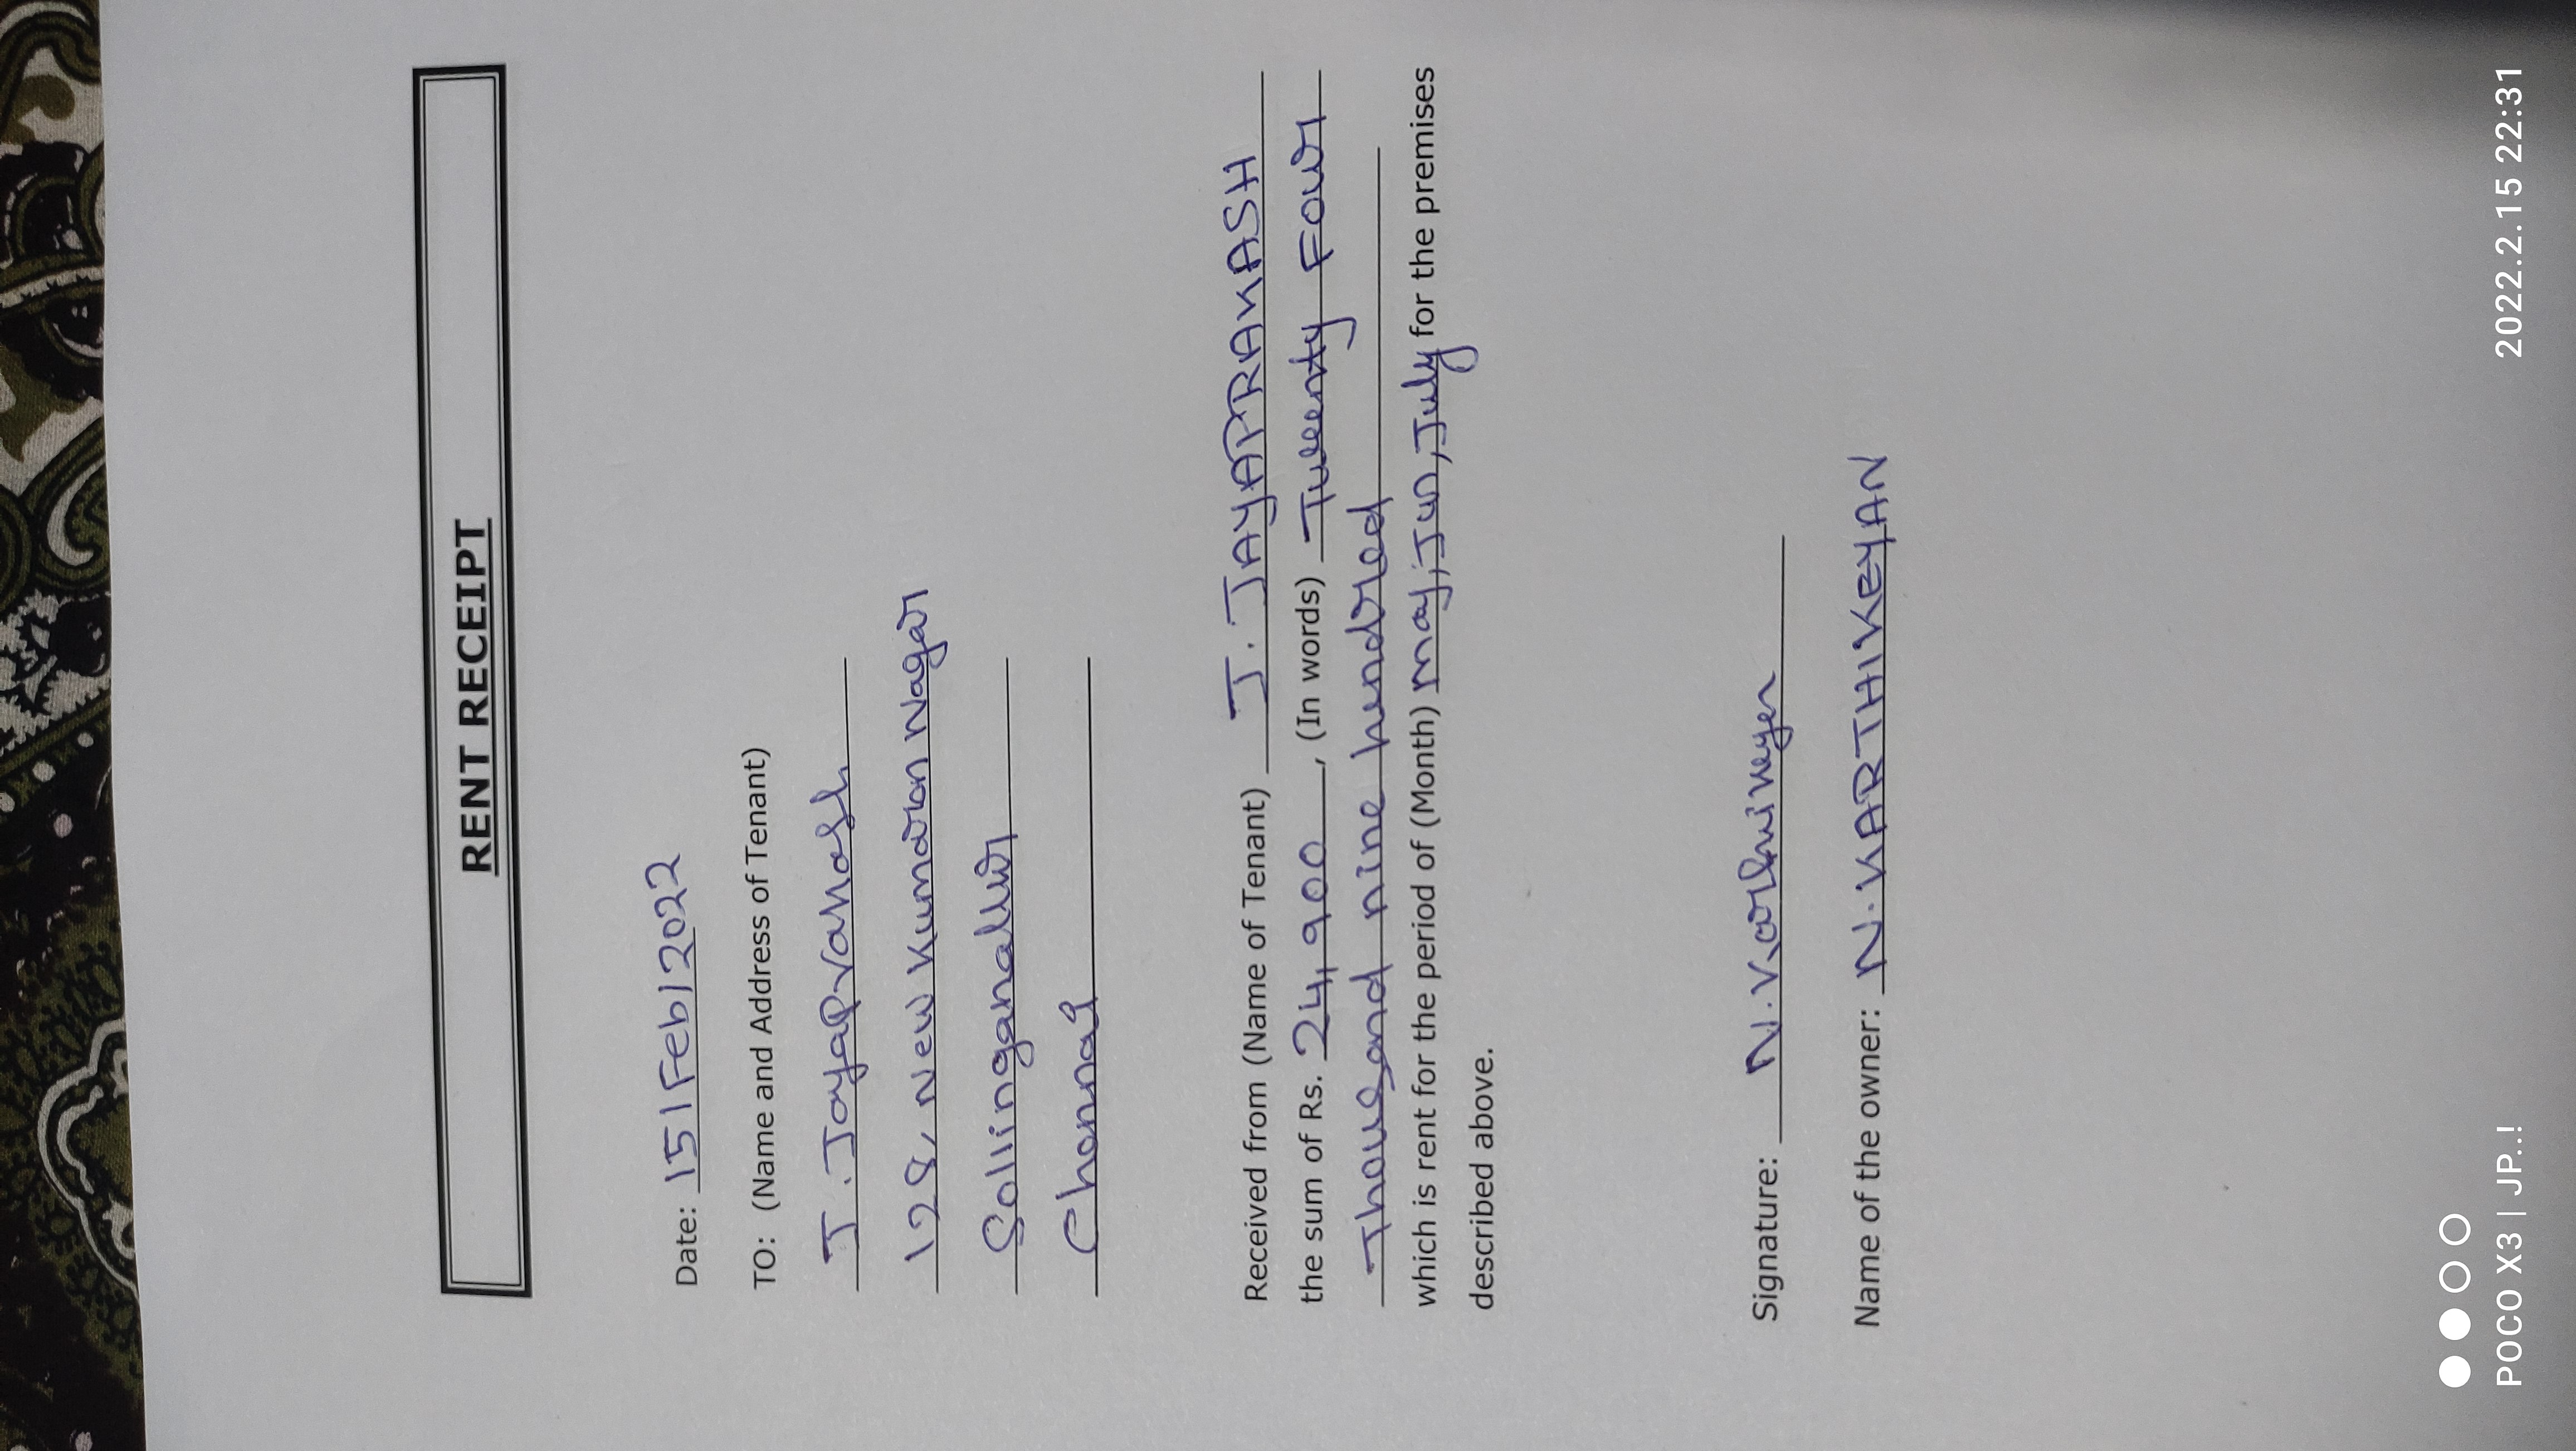 RENT RECEIPT
Date: 15/Feb/2022
TO: (Name and Address of Tenant)
J. Jayaprakash
128, New Kumaran Nagar
Sollinganallur
Chennai
Received from (Name of Tenant) J. JAYAPRAKASH
the sum of Rs. 24,900, (In words) Tweenty Four
Thousand nine hundred
which is rent for the period of (Month) may, Jun, July for the premises
described above.
Signature: N. Karthikeyan
Name of the owner: N. KARTHIKEYAN
POCO X3 | JP..!
2022.2.15 22:31